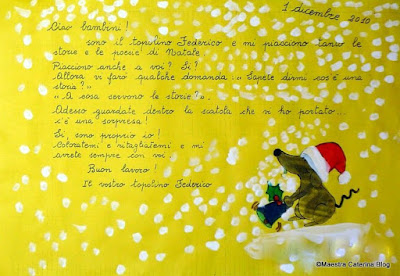 1 dicembre 2010
Ciao bambini!
sono il topolino Federico e mi piacciono tanto le
storie e le poesie di Natale.
Piacciono anche a voi? Sì?
Allora vi farò qualche domanda... "Sapete dirmi cos'è una
storia?"
"A cosa servono le storie?".
Adesso guardate dentro la scatola che vi ho portato...
c'è una sorpresa!
Sì, sono proprio io!
Coloratemi e ritagliatemi e mi
avrete sempre con voi.
Buon lavoro!
Il vostro topolino Federico
©Maestra Caterina Blog